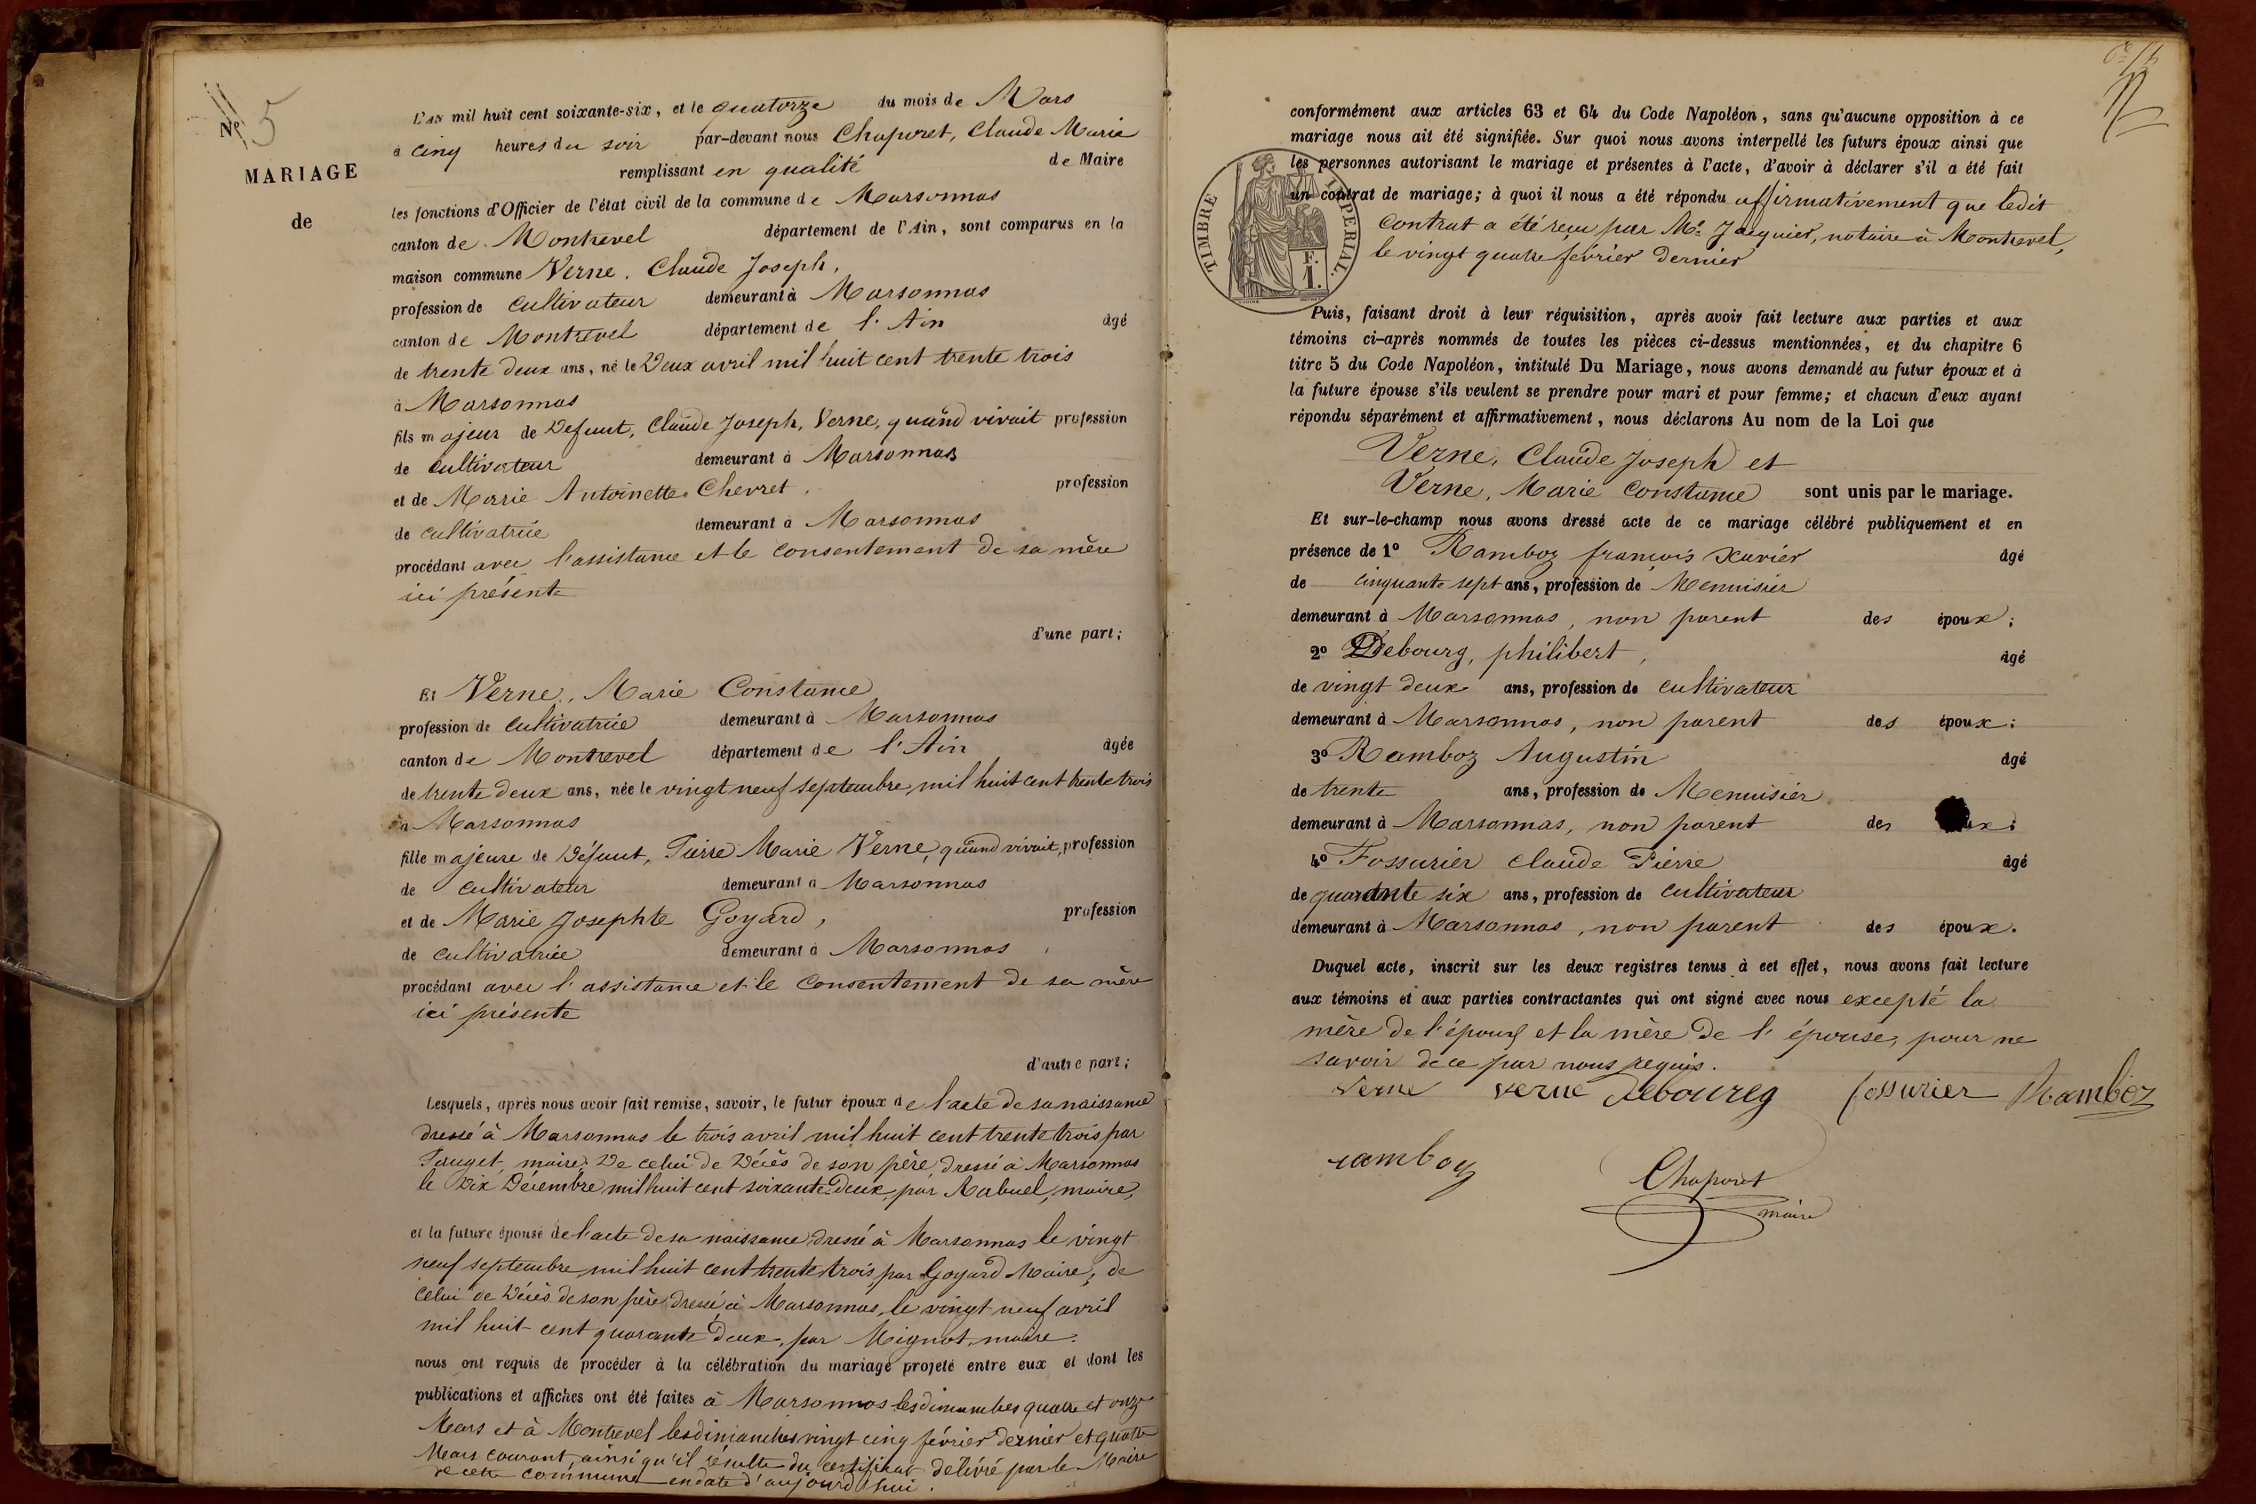 Nº 5
MARIAGE
de
L'AN mil huit cent soixante-six, et le quatorze du mois de Mars
à cinq heures du soir par-devant nous Chaporet, Claude Marie
remplissant en qualité de Maire
les fonctions d'Officier de l'état civil de la commune de Marsonnas
canton de Montrevel département de l'Ain, sont comparus en la
maison commune Verne, Claude Joseph,
profession de cultivateur demeurant à Marsonnas
canton de Montrevel département de l'Ain âgé
de trente deux ans, né le Deux avril mil huit cent trente trois
à Marsonnas
fils majeur de Défunt, Claude Joseph, Verne, quand vivait profession
de cultivateur demeurant à Marsonnas
et de Marie Antoinette Chevret, profession
de cultivatrice demeurant à Marsonnas
procédant avec l'assistance et le consentement de sa mère
ici présente
d'une part;
Et Verne, Marie Constance
profession de cultivatrice demeurant à Marsonnas
canton de Montrevel département de l'Ain âgée
de trente deux ans, née le vingt neuf septembre, mil huit cent trente trois
à Marsonnas
fille majeure de Défunt, Pierre Marie Verne, quand vivait, profession
de cultivateur demeurant à Marsonnas
et de Marie Josephte Goyard, profession
de cultivatrice demeurant à Marsonnas
procédant avec l'assistance et le consentement de sa mère
ici présente
d'autre part;
Lesquels, après nous avoir fait remise, savoir, le futur époux de l'acte de sa naissance
dressé à Marsonnas le trois avril mil huit cent trente trois par
Pauget, maire, De celui de Décès de son père, dressé à Marsonnas
le Dix Décembre mil huit cent soixante Deux, par Rabuel, maire,
et la future épouse de l'acte de sa naissance dressé à Marsonnas le vingt
neuf septembre, mil huit cent trente trois, par Goyard Maire, de
celui de Décès de son père dressé à Marsonnas, le vingt neuf avril
mil huit cent quarante Deux, par Mignot, maire.
nous ont requis de procéder à la célébration du mariage projeté entre eux et dont les
publications et affiches ont été faites à Marsonnas les dimanches quatre et onze
Mars et à Montrevel les dimanches vingt cinq février dernier et quatre
Mars courant, ainsi qu'il résulte du certificat délivré par le Maire
de cette commune en date d'aujourd'hui.
conformément aux articles 63 et 64 du Code Napoléon, sans qu'aucune opposition à ce
mariage nous ait été signifiée. Sur quoi nous avons interpellé les futurs époux ainsi que
les personnes autorisant le mariage et présentes à l'acte, d'avoir à déclarer s'il a été fait
un contrat de mariage; à quoi il nous a été répondu affirmativement que ledit
contrat a été reçu par Me Jacquier, notaire à Montrevel,
le vingt quatre février dernier
TIMBRE IMPERIAL.
F.
1.
Puis, faisant droit à leur réquisition, après avoir fait lecture aux parties et aux
témoins ci-après nommés de toutes les pièces ci-dessus mentionnées, et du chapitre 6
titre 5 du Code Napoléon, intitulé Du Mariage, nous avons demandé au futur époux et à
la future épouse s'ils veulent se prendre pour mari et pour femme; et chacun d'eux ayant
répondu séparément et affirmativement, nous déclarons Au nom de la Loi que
Verne, Claude Joseph et
Verne, Marie Constance sont unis par le mariage.
Et sur-le-champ nous avons dressé acte de ce mariage célébré publiquement et en
présence de 1º Ramboz françois Xavier âgé
de cinquante sept ans, profession de Menuisier
demeurant à Marsonnas, non parent des époux;
2º Debourg, philibert, âgé
de vingt deux ans, profession de cultivateur
demeurant à Marsonnas, non parent des époux;
3º Ramboz Augustin âgé
de trente ans, profession de Menuisier
demeurant à Marsonnas, non parent des ux;
4º Fossurier Claude Pierre âgé
de quarante six ans, profession de cultivateur
demeurant à Marsonnas, non parent des époux.
Duquel acte, inscrit sur les deux registres tenus à cet effet, nous avons fait lecture
aux témoins et aux parties contractantes qui ont signé avec nous excepté la
mère de l'époux et la mère de l'épouse, pour ne
savoir de ce par nous requis.
Verne verne debourg fossurier Ramboz
ramboz Chaporet
maire